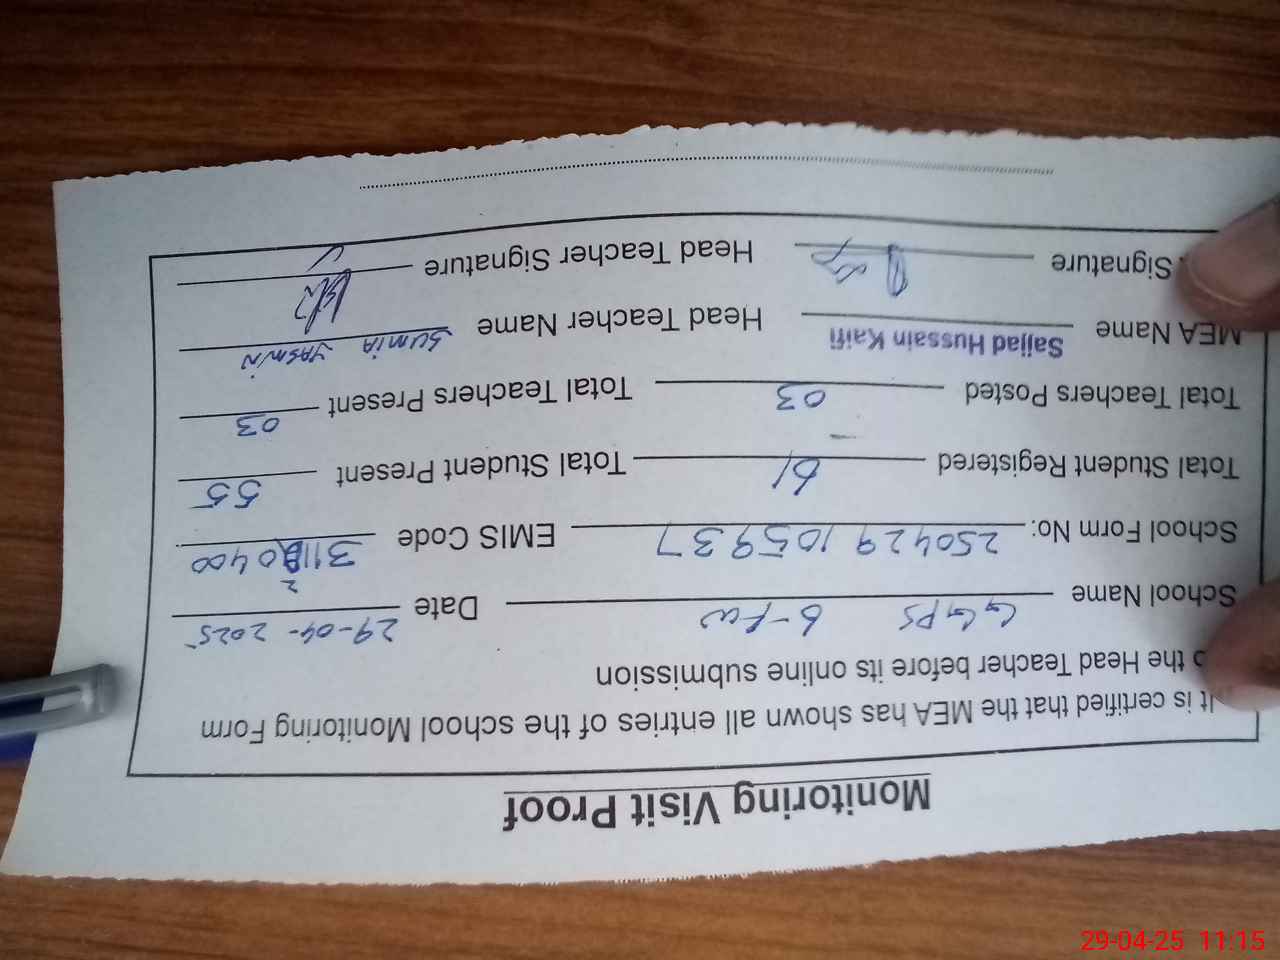 Monitoring Visit Proof
It is certified that the MEA has shown all entries of the school Monitoring Form
the Head Teacher before its online submission
School Name GGPS 6-FW Date 29-04-2025
School Form No: 250429 105937 EMIS Code
Total Student Registered 61 Total Student Present 55
Total Teachers Posted 03 Total Teachers Present 03
MEA Name Sajjad Hussain Kaifi Head Teacher Name SUMIA YASMIN
Signature Head Teacher Signature
29-04-25 11:15